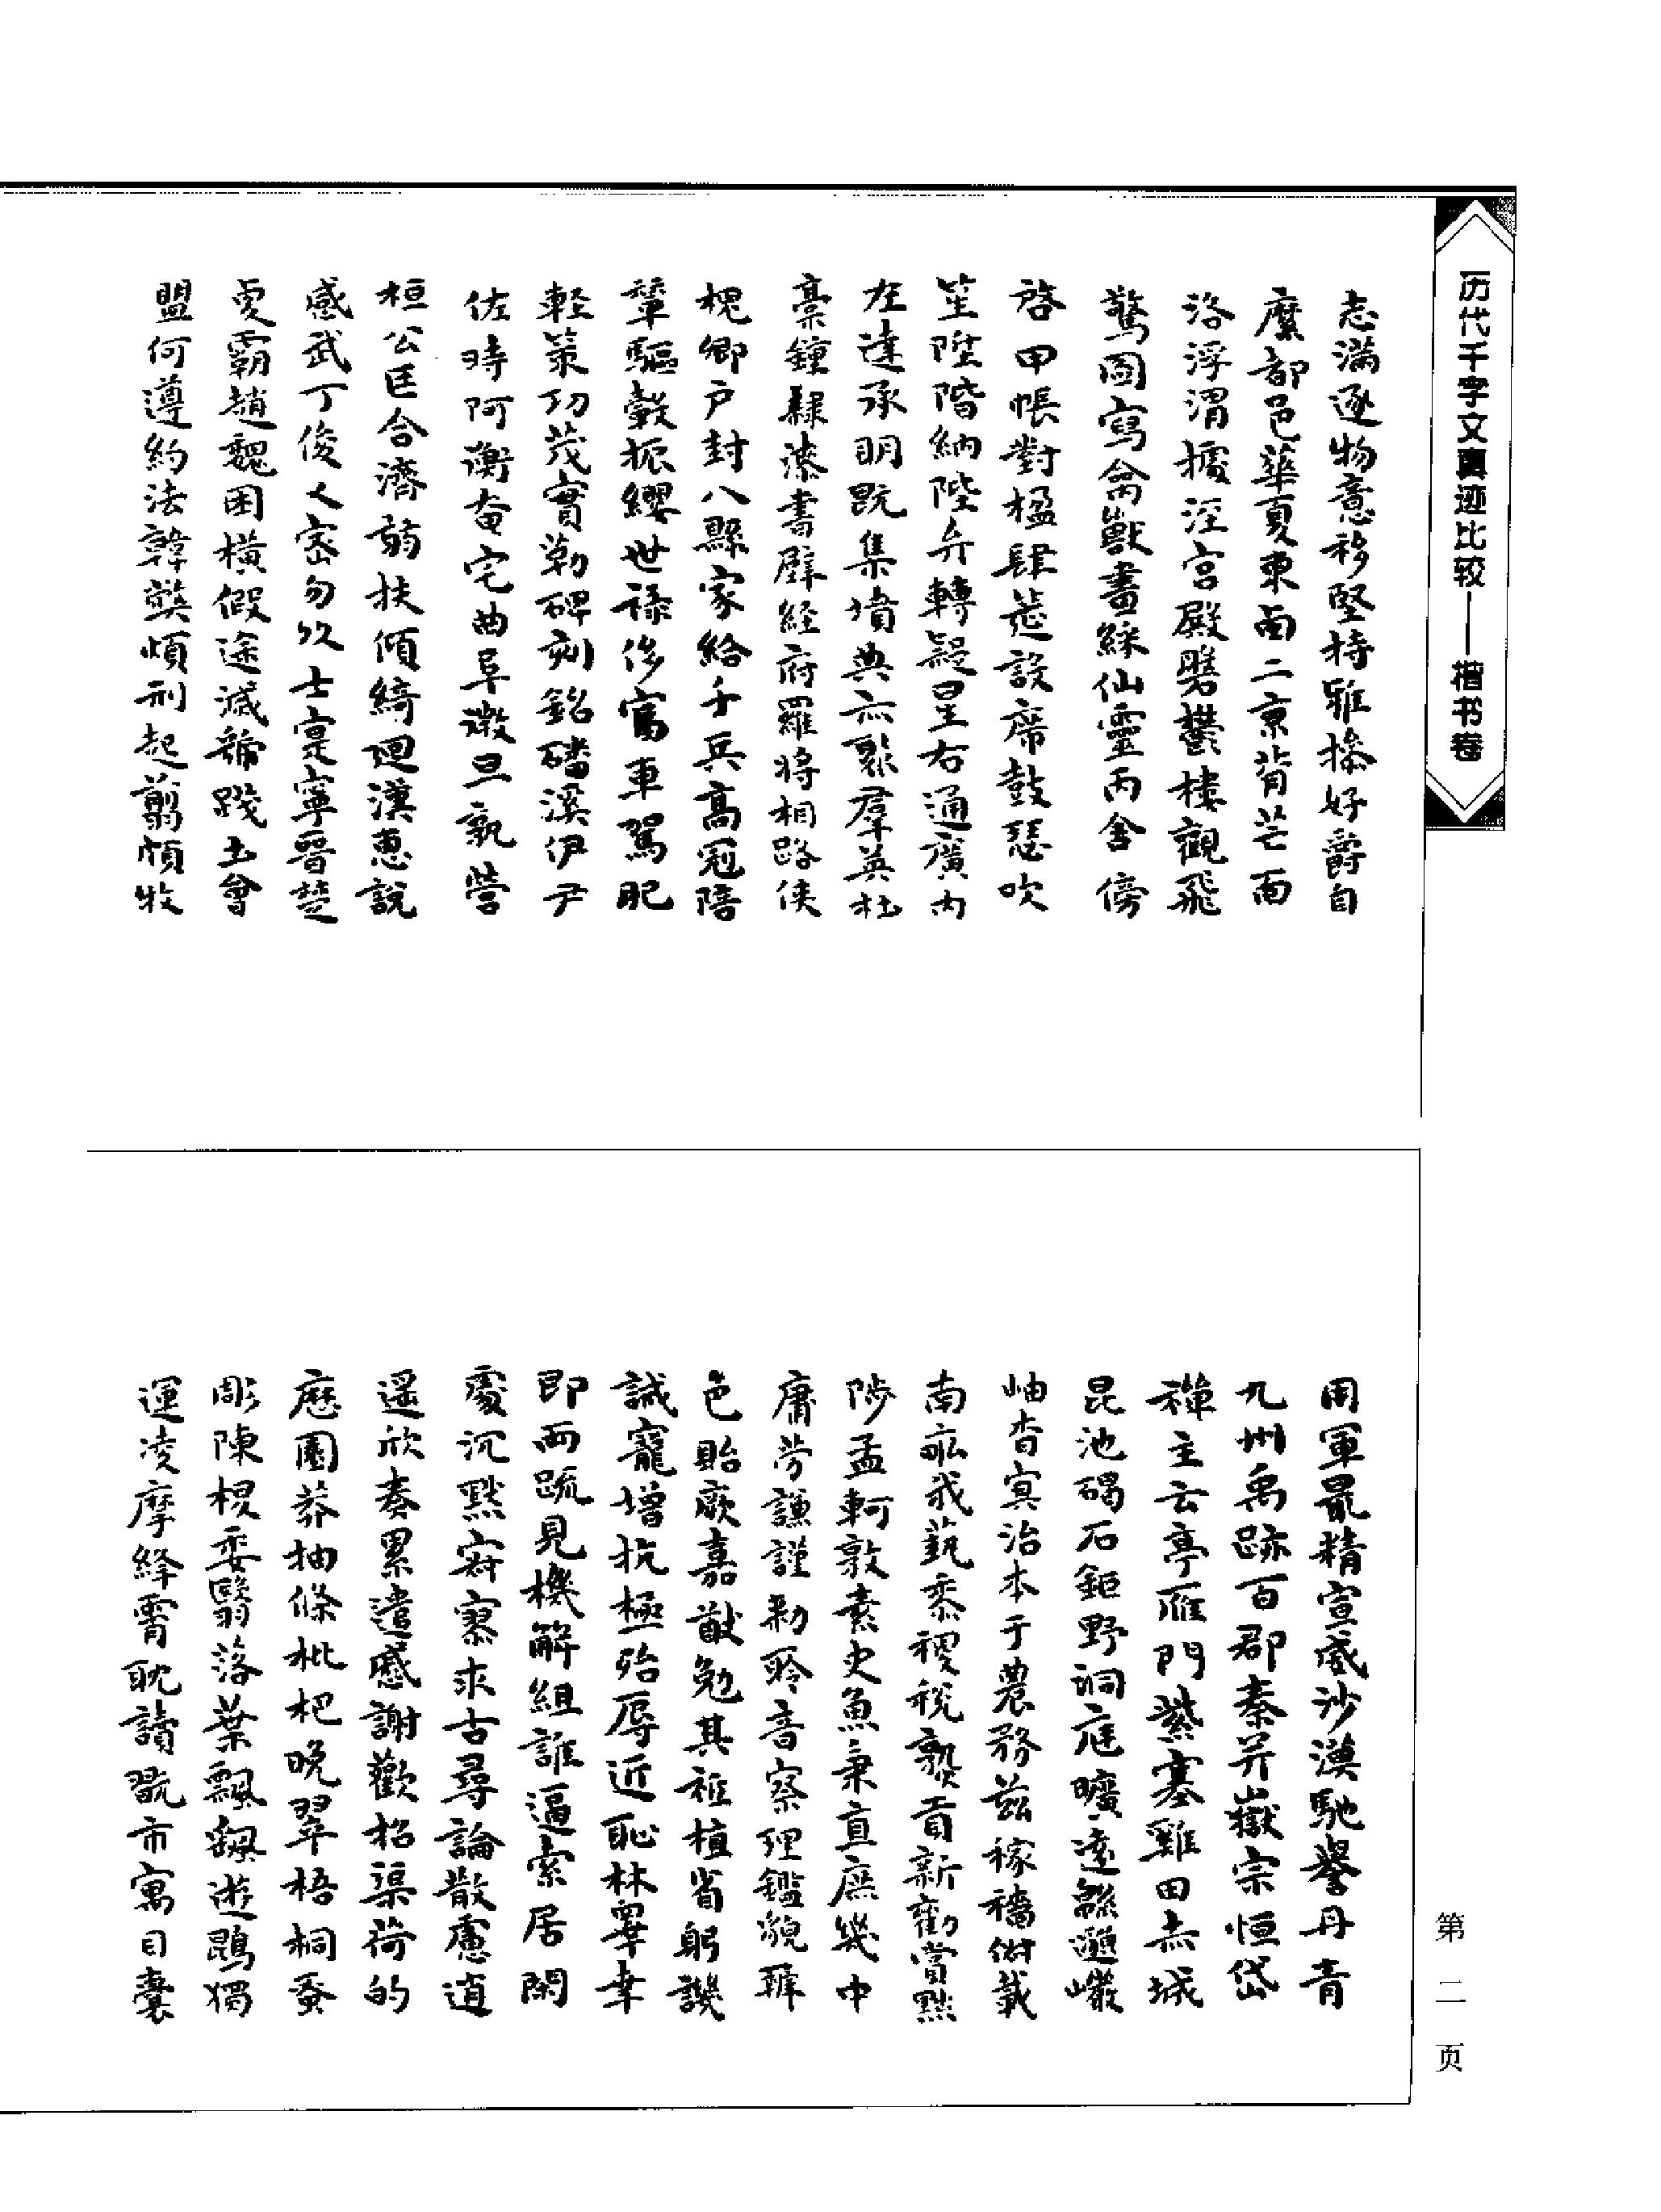 历代千字文真迹比较——楷书卷
志滿逐物意移堅持雅操好爵自
縻都邑華夏東西二京背芒面
洛浮渭據涇宫殿盤鬱樓觀飛
驚圖寫禽獸畫綵仙靈丙舍傍
啓甲帳對楹肆筵設席鼓瑟吹
笙陞階納陛弁轉疑星右通廣内
左達承明既集墳典亦聚羣英杜
稾鍾隸漆書壁経府羅將相路俠
槐卿户封八縣家給千兵髙冠陪
輦驅轂振纓世禄侈富車駕肥
軽策功茂實勒碑刻銘磻溪伊尹
佐時阿衡奄宅曲阜微旦孰營
桓公匡合濟弱扶傾綺迴漢惠說
感武丁俊乂密勿多士寔寧晋楚
更霸趙魏困横假途滅虢踐土會
盟何遵約法韓弊煩刑起翦頗牧
用軍最精宣威沙漠馳譽丹青
九州禹跡百郡秦并嶽宗恒岱
禪主云亭鴈門紫塞雞田赤城
昆池碣石鉅野洞庭曠遠緜邈巖
岫杳冥治本于農務兹稼穡俶載
南畝我藝黍稷税熟貢新勸賞黜
陟孟軻敦素史魚秉直庶幾中
庸勞謙謹勑聆音察理鑑貌辯
色貽厥嘉猷勉其祗植省躬譏
誡寵增抗極殆辱近恥林睾幸
即兩疏見機解組誰逼索居閑
處沉默寂寥求古尋論散慮逍
遥欣奏累遣慼謝歡招渠荷的
歷園莽抽條枇杷晚翠梧桐蚤
彫陳根委翳落葉飄飖遊鵾獨
運凌摩絳霄耽讀翫市寓目囊
第二页